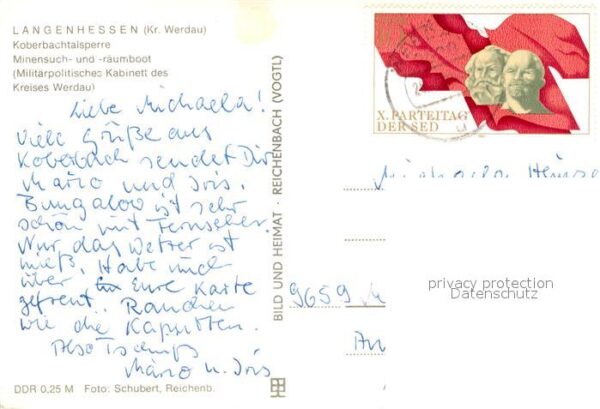 LANGENHESSEN (Kr. Werdau)
Koberbachtalsperre
Minensuch- und -räumboot
(Militärpolitisches Kabinett des
Kreises Werdau)
Liebe Michaela!
Viele Grüße aus
Koberbach sendet Dir
Mario und Iris.
Bungalow ist sehr
schön mit Fernseher.
Nur das Wetter ist
mieß. Habe mich
über Eure Karte
gefreut. Rauchen
wie die
Also Tschüß
Mario u. Iris
DDR 0,25 M Foto: Schubert, Reichenb.
BILD UND HEIMAT · REICHENBACH (VOGTL)
X. PARTEITAG
DER SED
Michaela
9659
privacy protection
Datenschutz